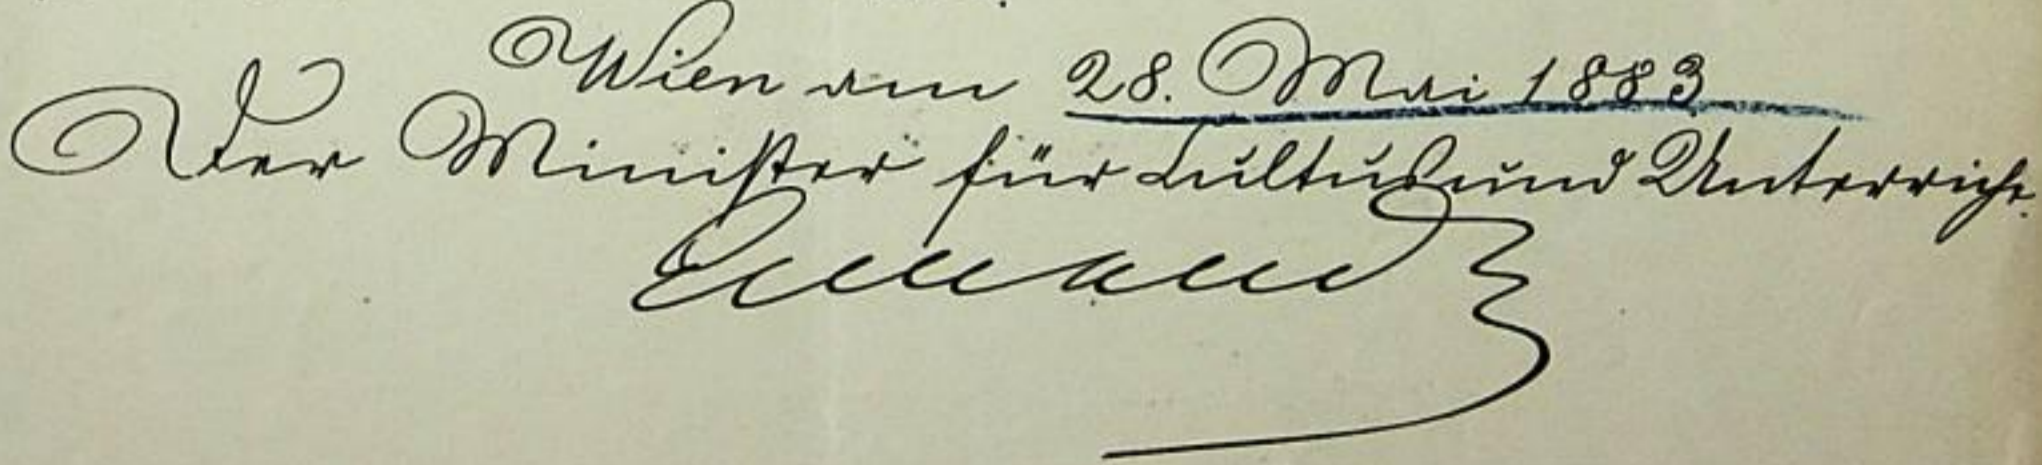 Wien am 28. Mai 1883
Der Minister für Cultus und Unterricht.